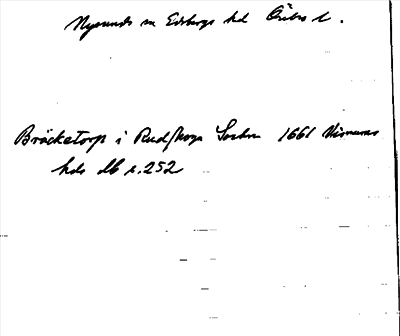 Nysunds sn Edsbergs hd Örebro l.
Bräcketorp i Rudskoga Socken 1661 Visnums
hds db s. 252